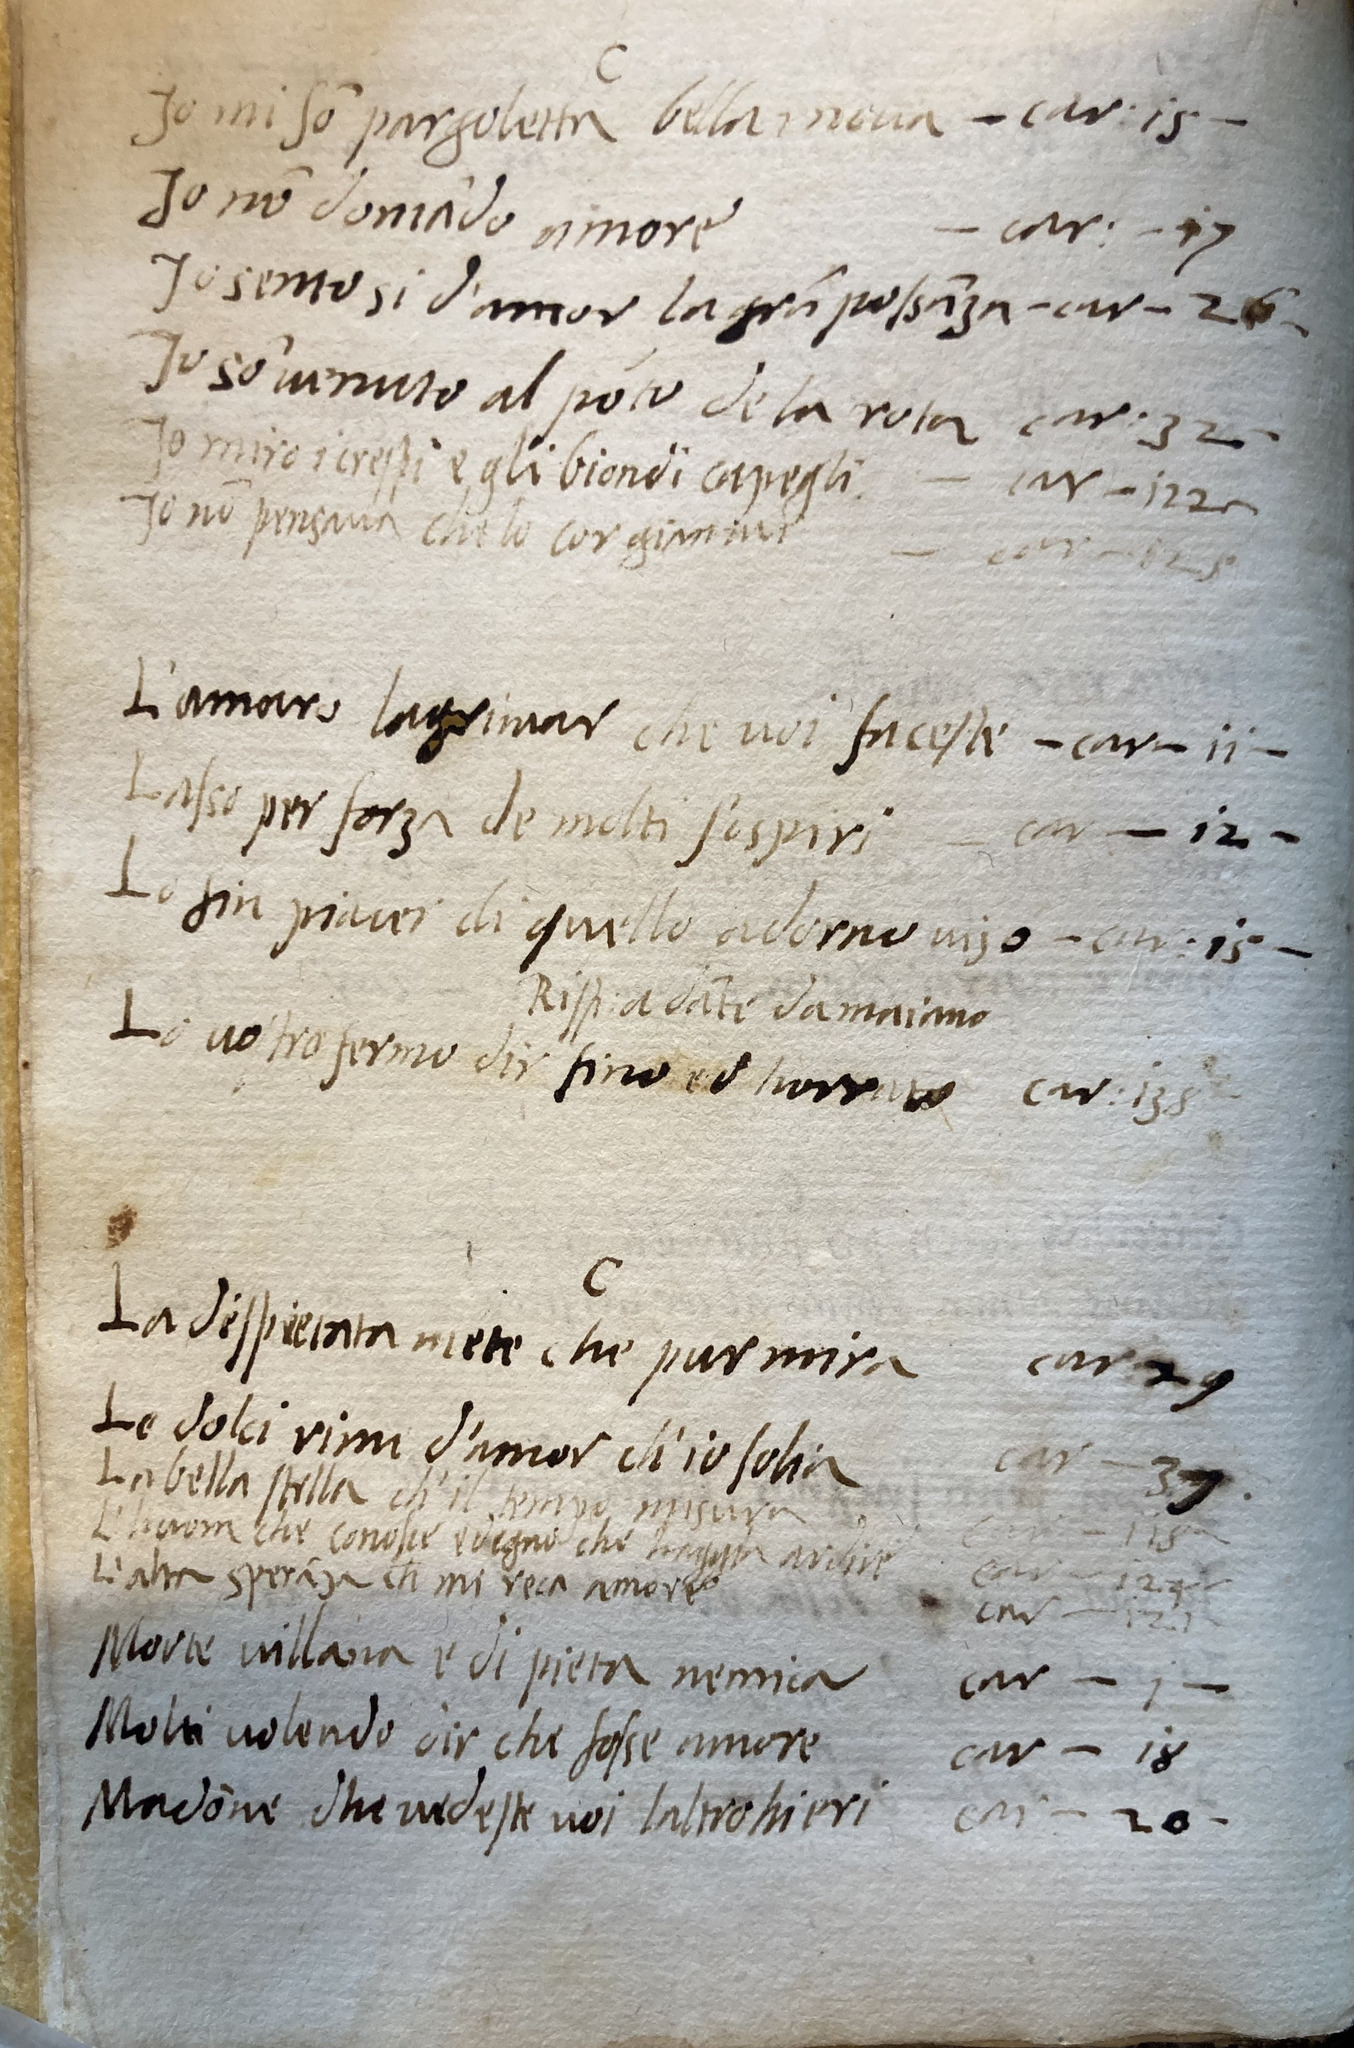 C
Io mi sō pargoletta bella i nova – car: 15 –
Io nō domādo amore – car: – 17
Io sento si d'amor la grā possāza – car – 26 –
Io sō venuto al pōto de la rota car: 32 –
Io miro i crespi e gli biondi capegli – car – 122 –
Io nō pensava che lo cor giammai – car – 125
L'amaro lagrimar che voi faceste – car – 11 –
Lasso per forza de molti sospiri – car – 12 –
Lo fin piacer di quello adorno viso – car: 15 –
Risp: a dāte da maiano
Lo vostro fermo dir fino ed horrato car: 135
C
La dispietata mēte che pur mira car 29
Le dolci rime d'amor ch'io solia car – 37.
La bella stella ch'il tempo misura car – 115
L'huom che conosce è degno che haggia ardire car –
L'alta sperāza ch mi reca amore car – 121
Morte villana e di pieta nemica car – 1 –
Molti volendo dir che fosse amore car – 18
Madōne dhe vedeste voi laltrohieri car – 20 –